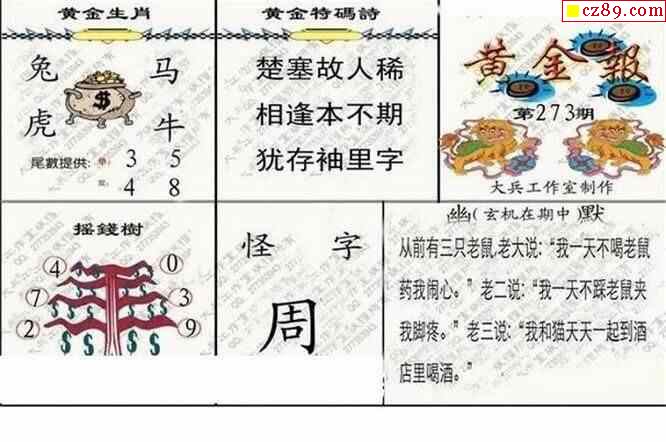 cz89.com
黄金生肖
兔 马
虎 牛
尾數提供: 单: 3 5
双: 4 8
黄金特碼詩
楚塞故人稀
相逢本不期
犹存袖里字
黄金報
第273期
大兵工作室制作
摇錢樹
4 0
7 3
2 9
$ $ $ $ $ $
怪 字
周
幽(玄机在期中)默
从前有三只老鼠,老大说:“我一天不喝老鼠
药我闹心。”老二说:“我一天不踩老鼠夹
我脚疼。”老三说:“我和猫天天一起到酒
店里喝酒。”